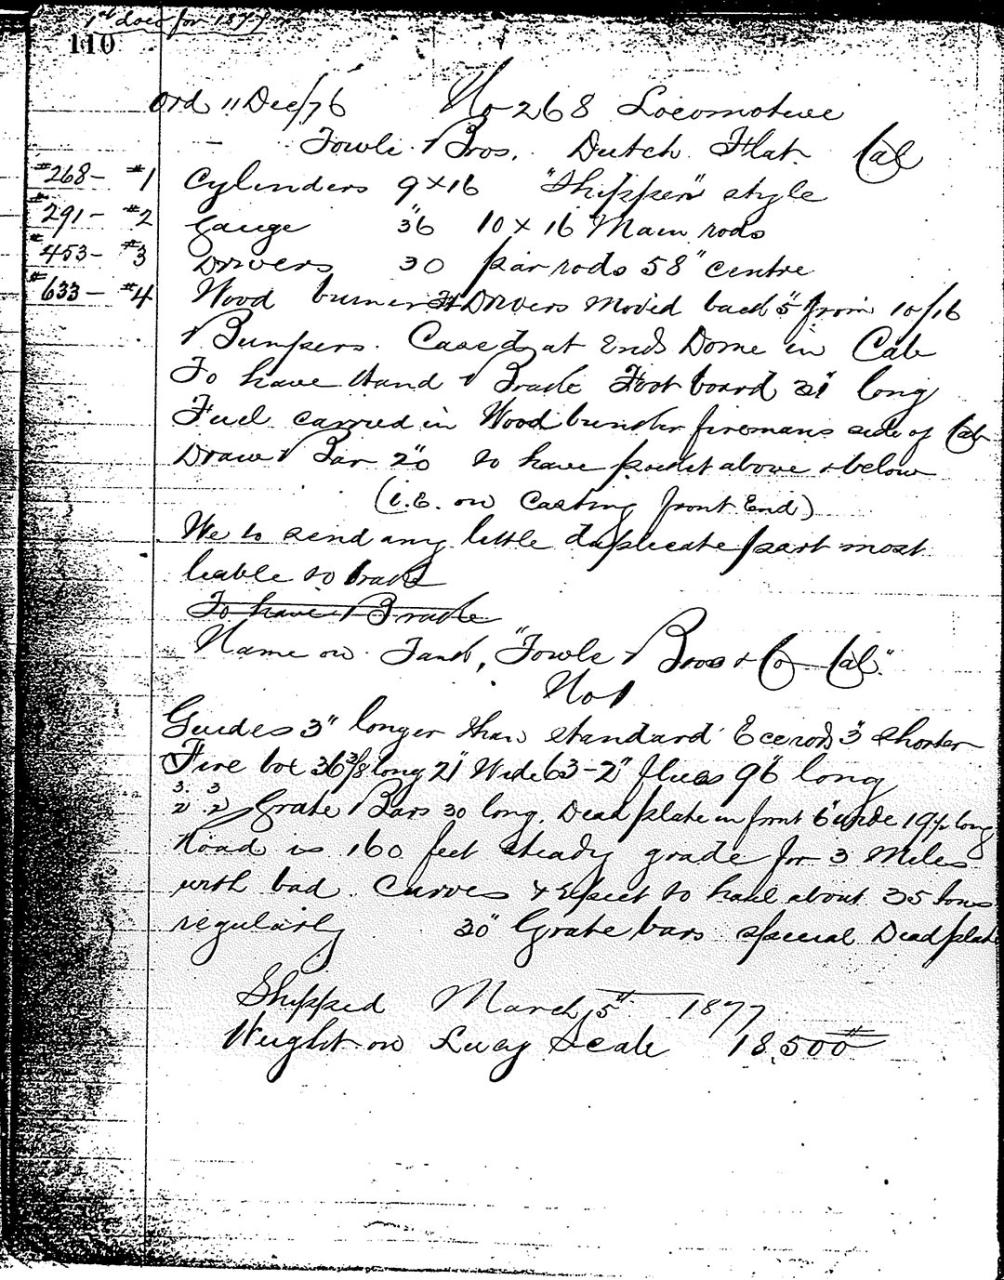 1st loco for 1877
110
Ord 11 Dec/76 No 268 Locomotive
Towle Bros. Dutch Flat Cal
#268- #1 Cylinders 9 x 16 "Shipper" style
#291- #2 Gauge 36" 10 x 16 Main rods
#453- #3 Drivers 30 par rods 58" centre
#633- #4 Wood burner Drivers moved back 5" from 10/16
Bumpers. Cased at Ends Dome in Cab
To have Hand Brake Foot board 21" long
Fuel carried in Wood bunker firemans side of Cab
Draw Bar 20" to have pocket above & below
(i.E. on Casting front End)
We to send any little duplicate part most
leable to brake
To have Brake
Name on Tank, "Towle Bros & Co Cal."
No 1
Guides 3" longer than standard Eccrods 3" shorter
Fire box 36 3/8 long 21" Wide 63-2" flues 96 long
3. 3
2 2 Grate Bars 30 long. Dead plate in front 6" wide 19 1/2 long
Road is 160 feet steady grade for 3 Miles
with bad Curves & Expect to haul about 35 tons
regularly 30" Grate bars special Dead plate
Shipped March 5th 1877
Weight on Scale 18,500#